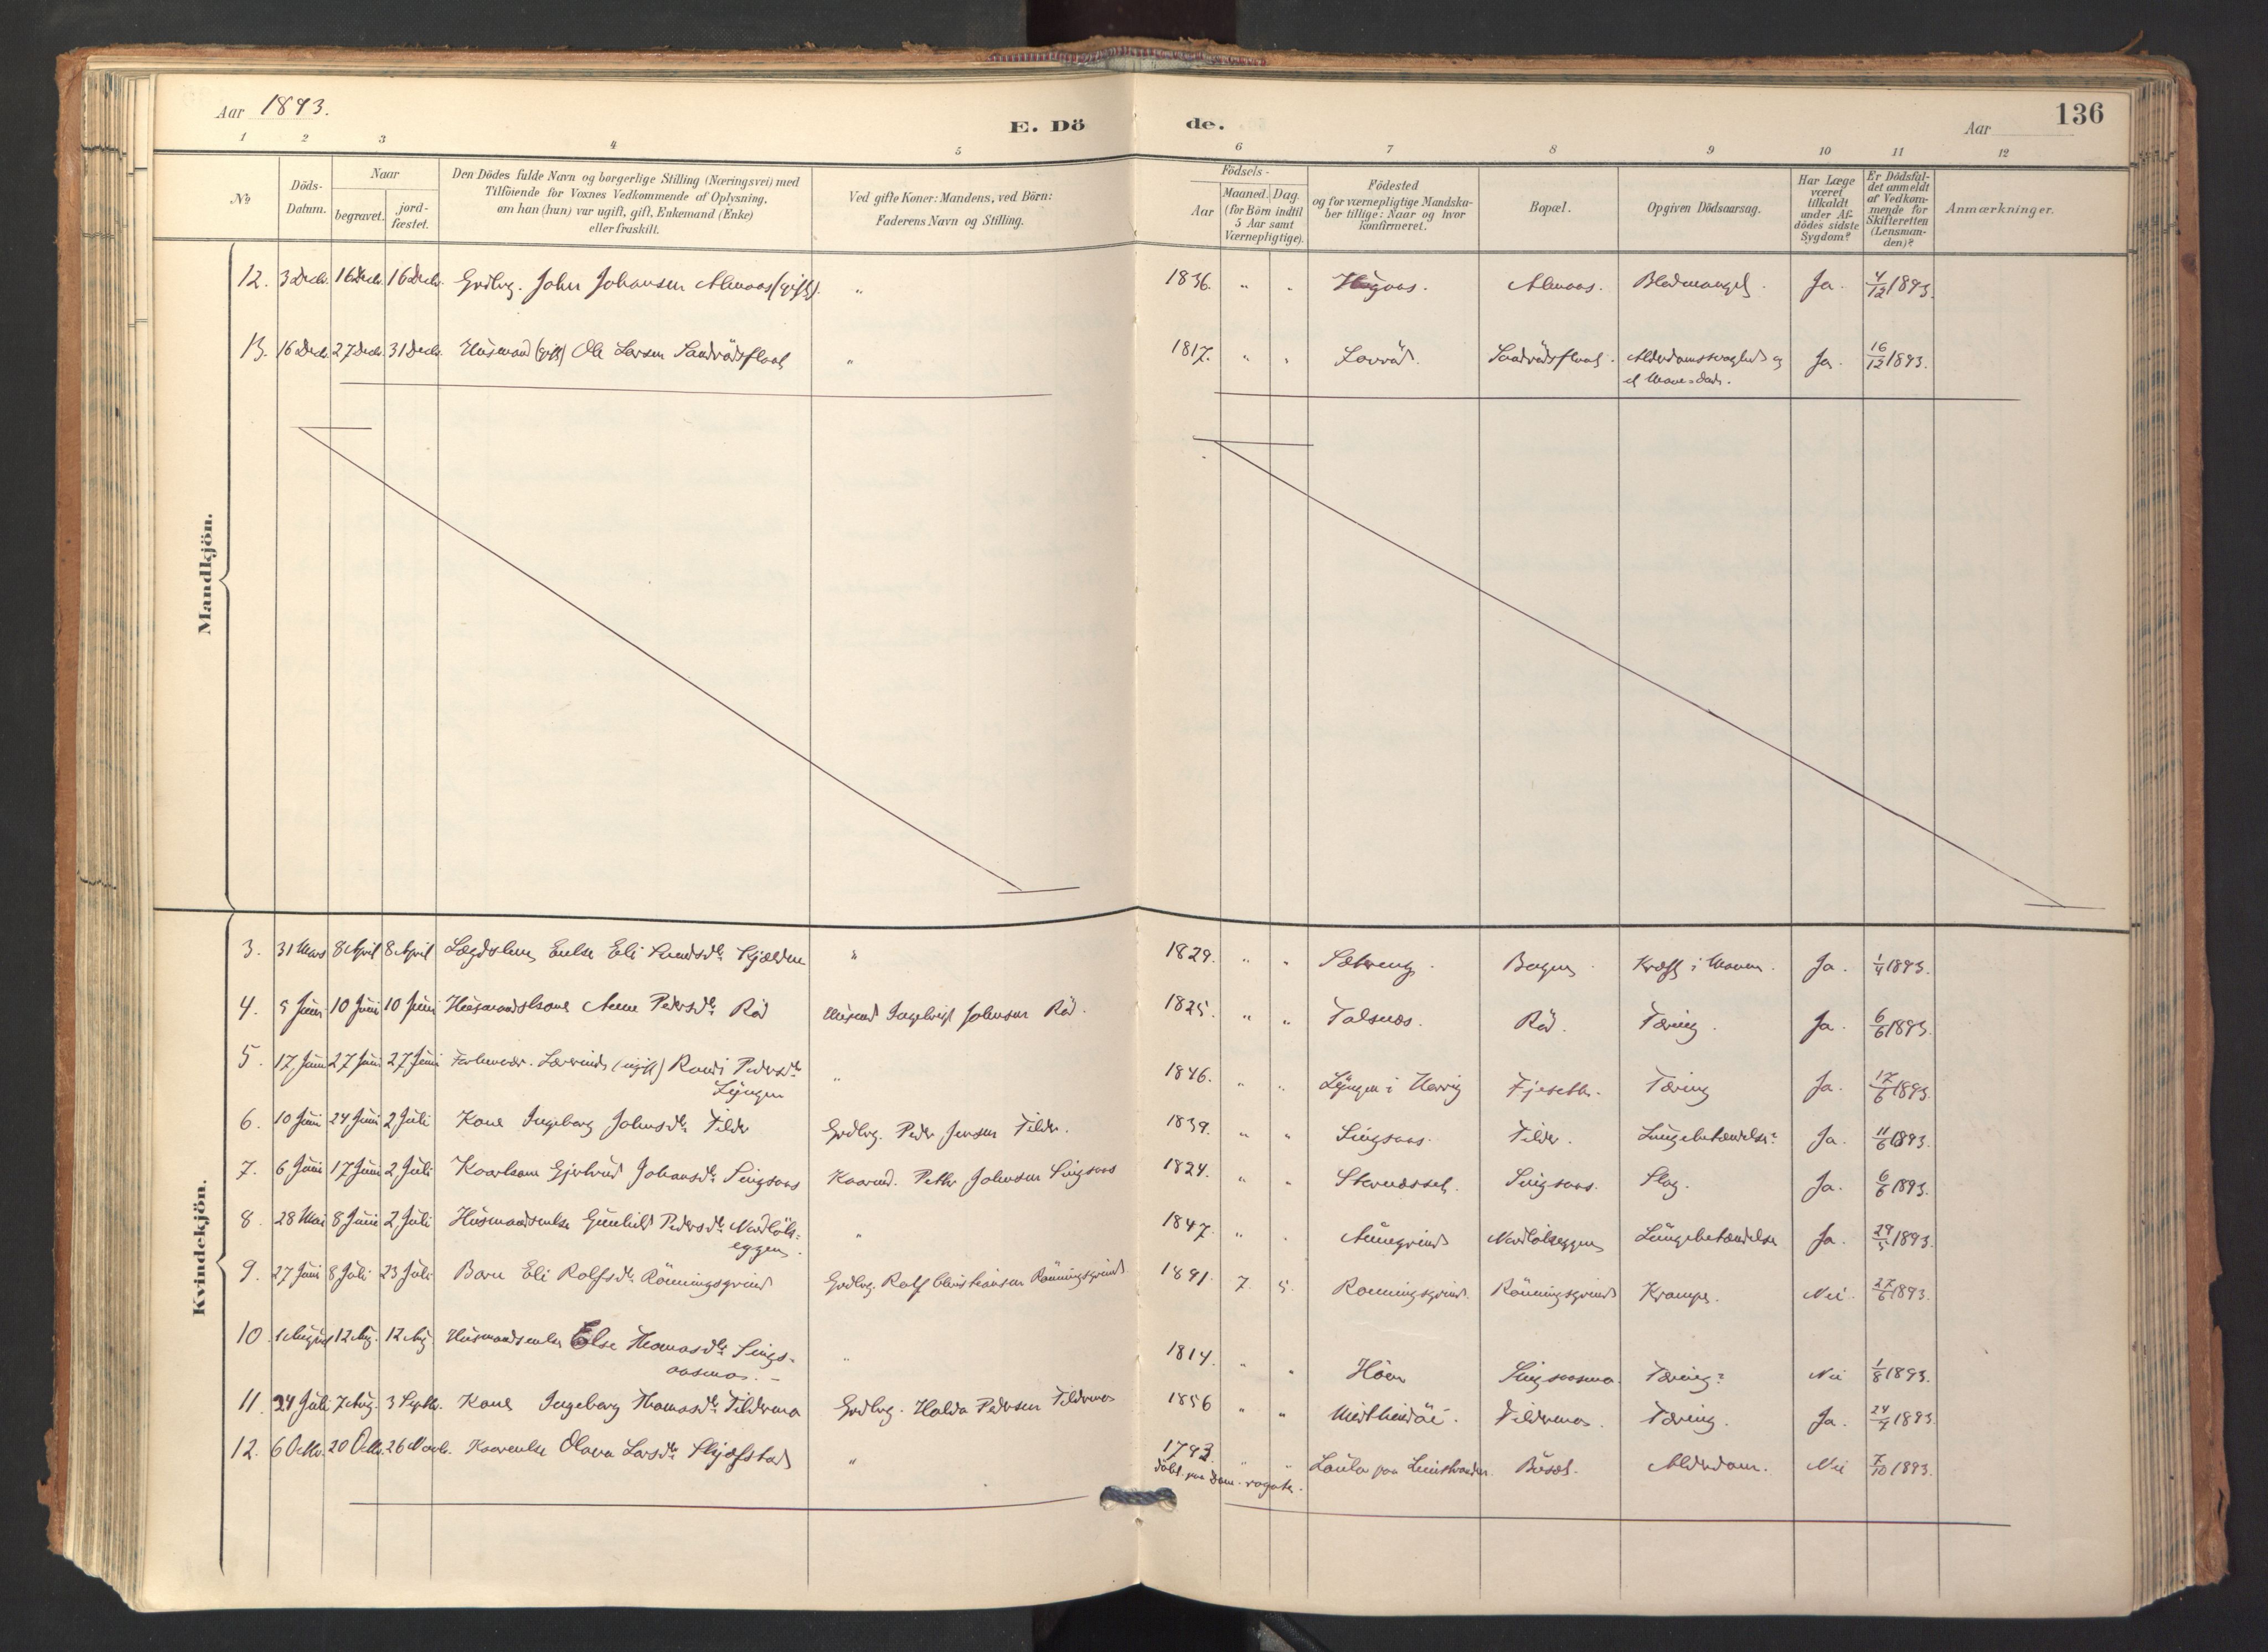 Aar 1893.
E. Dö
de.
Aar
136
1 2 3 4 5 6 7 8 9 10 11 12
№
Döds-
Datum.
Naar
begravet.
jord-
fæstet.
Den Dödes fulde Navn og borgerlige Stilling (Næringsvei) med
Tilföiende for Voxnes Vedkommende af Oplysning,
om han (hun) var ugift, gift, Enkemand (Enke)
eller fraskilt.
Ved gifte Koner: Mandens, ved Börn:
Faderens Navn og Stilling.
Födsels-
Aar
Maaned. Dag.
(for Börn indtil
5 Aar samt
Værnepligtige).
Födested
og for værnepligtige Mandska-
ber tillige: Naar og hvor
konfirmeret.
Bopæl.
Opgiven Dödsaarsag.
Har Læge
været
tilkaldt
under Af-
dödes sidste
Sygdom?
Er Dödsfal-
det anmeldt
af Vedkom-
mende for
Skifteretten
(Lensman-
den)?
Anmærkninger.
Mandkjön.
12. 3 Decbr. 16 Decbr. 16 Decbr. Grdbrg. John Johansen Almaas (gift). " 1836. " " Almaas. Blodmangel. Ja. 4/12 1893.
13. 16 Decbr. 27 Decbr. 31 Decbr. Husmand (gift) Ole Larsen " 1817. " " Alderdomssvaghed og Ja. 16/12 1893.
Kvindekjön.
3. 31 Mars 8 April 8 April Enke Eli " 1829. " " Kræft i Maven. Ja. 1/4 1893.
4. 5 Juni 10 Juni 10 Juni Husmandskone Anne Pedersdtr Röd Husmd Ingebrigt Johnsen Röd. 1825. " " Talsnæs. Röd. Tæring. Ja. 6/6 1893.
5. 17 Juni 27 Juni 27 Juni Lærerinde (ugift) Randi Pedersdtr
Lyngen " 1846. " " Lyngen i Fjeseth. Tæring Ja. 17/6 1893.
6. 10 Juni 24 Juni 2 Juli Kone Ingeborg Johnsdtr Tilder Grdbrg. Peder Jensen Tilder. 1839. " " Singsaas. Tilder. Lungebetændelse? Ja. 11/6 1893.
7. 6 Juni 17 Juni 2 Juli Gjertrud Johansdtr Singsaas Petter Johnsen Singsaas 1824. " " Singsaas. Slag. Ja. 6/6 1893.
8. 28 Mai 8 Juni 2 Juli Husmandsenke Gunhild Pedersdtr
eggen. " 1847. " " Lungebetændelse Ja. 29/5 1893.
9. 27 Juni 8 Juli 23 Juli Barn Eli Rolfsdtr Rönningsgrind Grdbrg. Rolf Christiansen Rönningsgrind 1891. 7. 5. Rönningsgrind. Rönningsgrind Krampe. Nei. 27/6 1893.
10. 1 August 12 Aug. 12 Aug Husmandsenke Else Thomasdtr Sings-
aasmo. " 1814. " " Singsaasmo. Tæring? Nei 1/8 1893.
11. 24 Juli 7 Aug. 3 Septbr. Kone Ingeborg Thomasdtr Tildermo Grdbrg. Haldo Pedersen Tildermo 1856 " " Tildermo. Tæring. Ja. 24/7 1893.
12. 6 Octbr. 20 Octbr. 26 Novb. Kaarenke Olava Larsdtr Skjefstad " 1793. " " paa Leinstranden. Alderdom. Nei 7/10 1893.
döbt paa Dom. rogate.